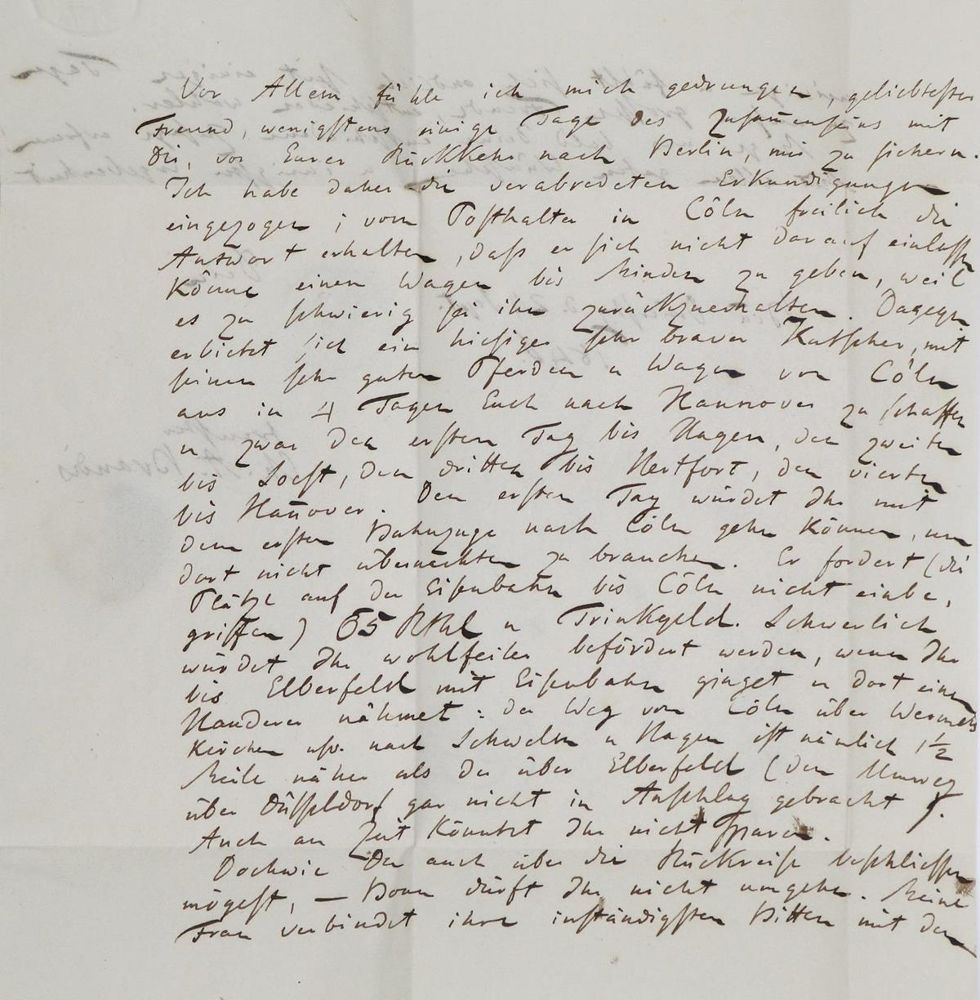 Vor Allem fühle ich mich gedrungen, geliebtester
Freund, wenigstens einige Tage des Zusammenseins mit
Dir, vor Eurer Rückkehr nach Berlin, mir zu sichern.
Ich habe daher die verabredeten Erkundigungen
eingezogen; vom Posthalter in Cöln freilich die
Antwort erhalten, daß er sich nicht darauf einlassen
könne einen Wagen bis Minden zu geben, weil
es zu schwierig sei ihn zurückzuerhalten. Dagegen
erbietet sich ein hiesiger sehr braver Kutscher, mit
seinen sehr guten Pferden u Wagen von Cöln
aus in 4 Tagen Euch nach Hannover zu schaffen
u zwar den ersten Tag bis Hagen, den zweiten
bis Soest, den dritten bis Hertfort, den vierten
bis Hañover. Den ersten Tag würdet Ihr mit
dem ersten Bahnzuge nach Cöln gehn können, um
dort nicht übernachten zu brauchen. Er fordert (die
Plätze auf der Eisenbahn bis Cöln nicht einbe,
griffen) 65 Rthl u Trinkgeld. Schwerlich
würdet Ihr wohlfeiler befördert werden, wenn Ihr
bis Elberfeld mit Eisenbahn ginget u dort einen
Hauderer nähmet: der Weg von Cöln über Wermels
kirchen usw. nach Schwelm u Hagen ist nämlich 1½
Meile näher als der über Elberfeld (den Umweg
über Düsseldorf gar nicht in Anschlag gebracht).
Auch an Zeit könntet Ihr nicht sparen.
Doch wie Du auch über die Rückreise beschließen
mögest, – Bonn dürft Ihr nicht umgehn. Meine
Frau verbindet ihre inständigsten Bitten mit den